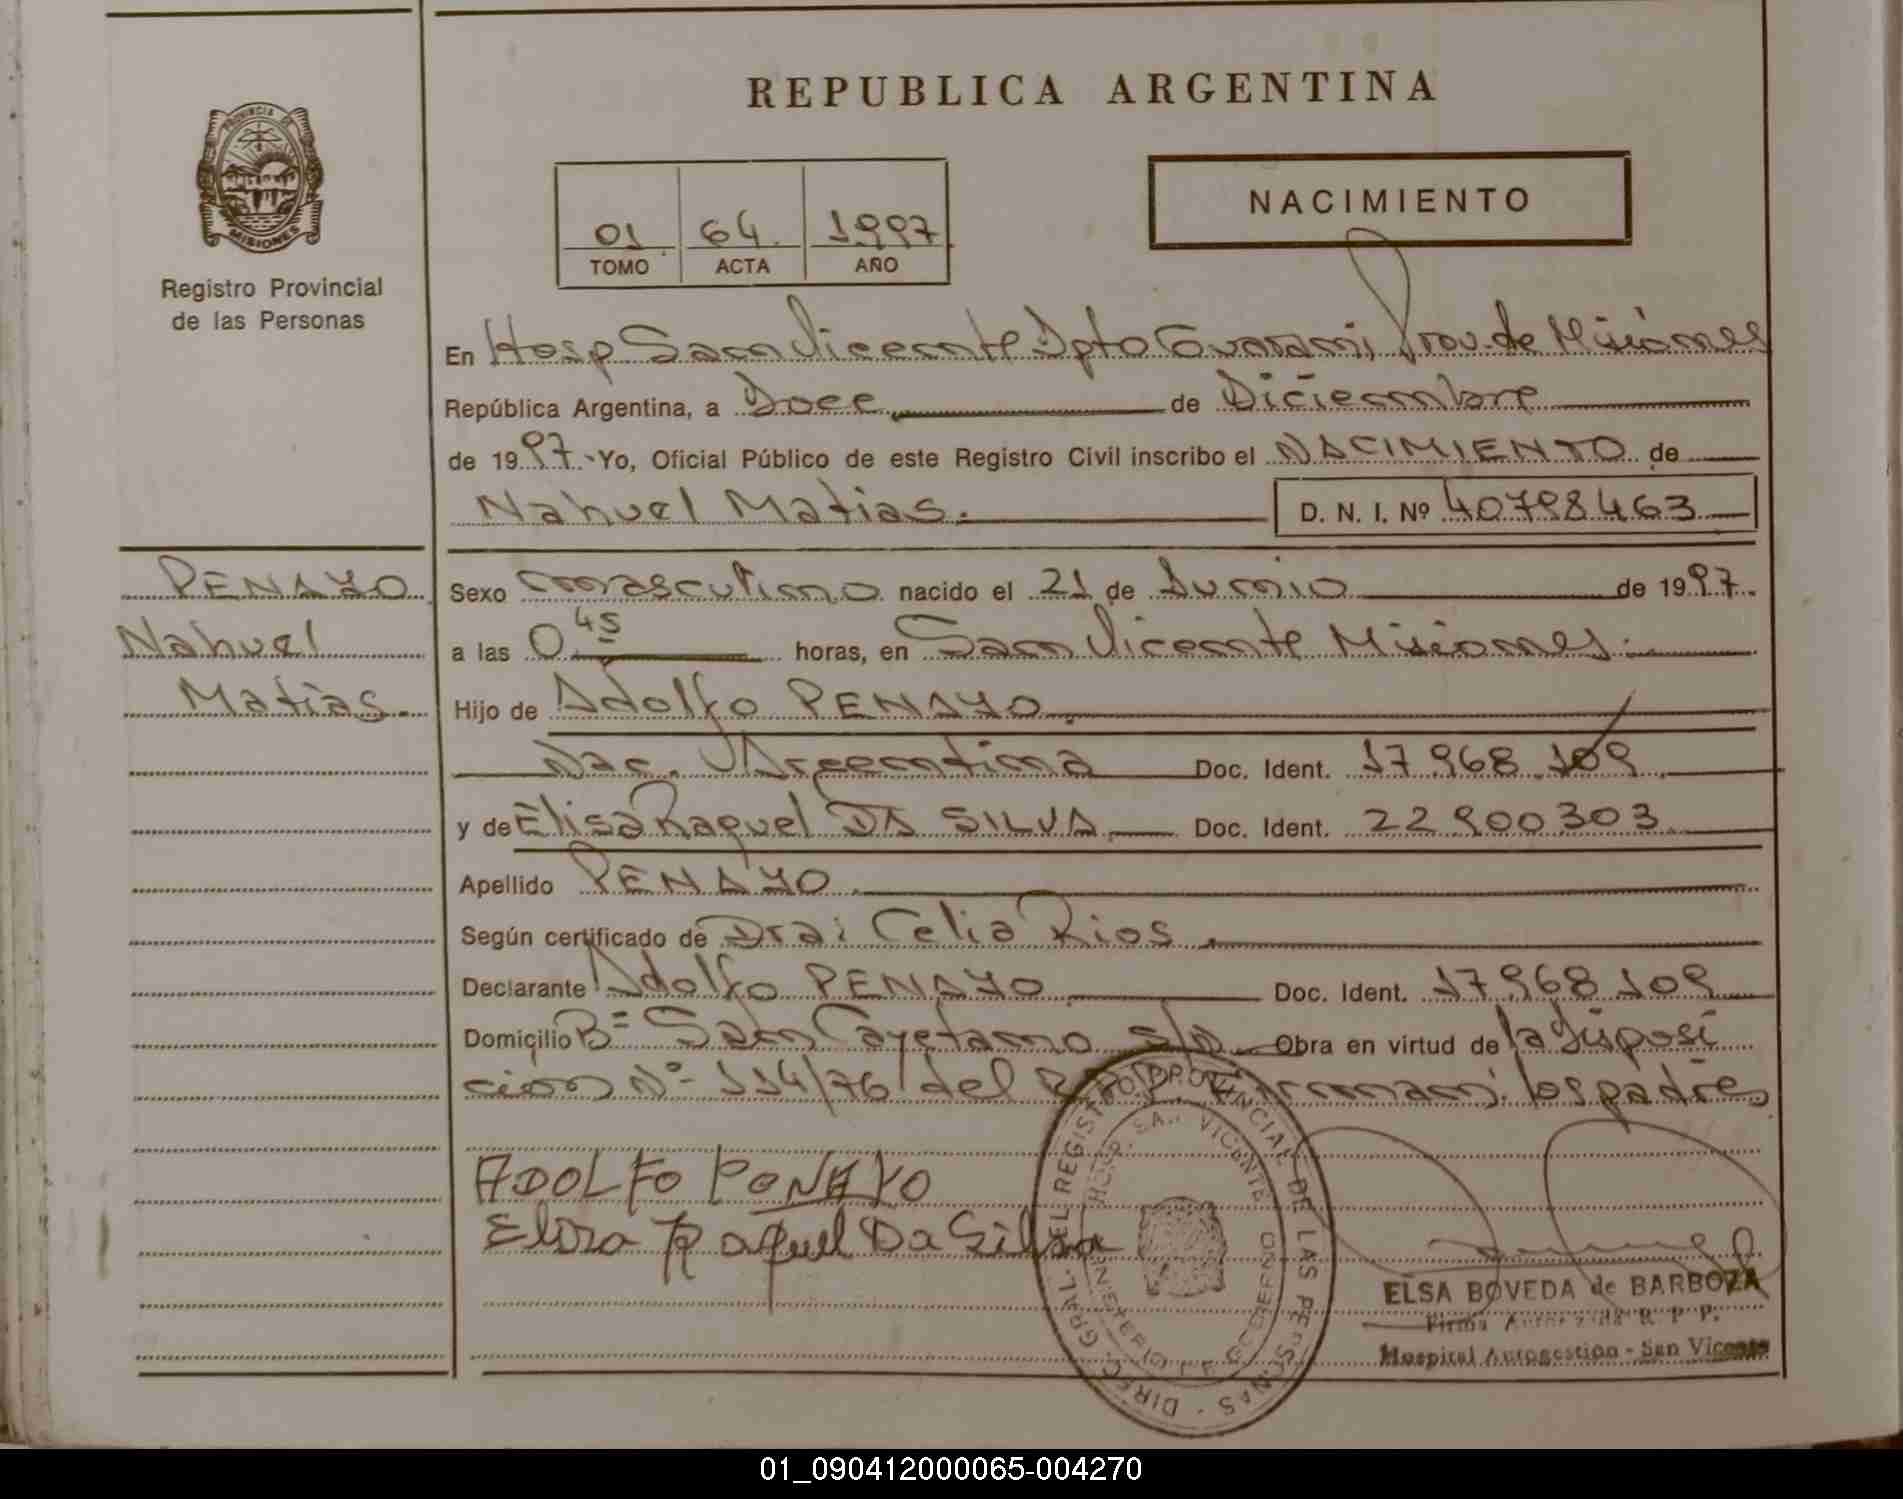 REPUBLICA ARGENTINA
PROVINCIA DE
MISIONES
Registro Provincial
de las Personas
01 64. 1997
TOMO ACTA AÑO
NACIMIENTO
En Hosp San Vicente Dpto Guarani, Prov. de Misiones
República Argentina, a Doce de Diciembre
de 1997. Yo, Oficial Público de este Registro Civil inscribo el NACIMIENTO de
Nahuel Matias. D. N. I. Nº 40798463
PENAYO
Nahuel
Matias.
Sexo masculino nacido el 21 de Junio de 1997.
a las 0 45 horas, en San Vicente Misiones.
Hijo de Adolfo PENAYO
Nac. Argentina Doc. Ident. 17968.109
y de Elisa Raquel DA SILVA Doc. Ident. 22900303
Apellido PENAYO
Según certificado de Dra: Celia Rios
Declarante Adolfo PENAYO Doc. Ident. 17968109
Domicilio Bº San Cayetano s/n Obra en virtud de la disposi
cion Nº 114/76 del R.P.P. Firman: los padres
ADOLFO PENAYO
Elisa Raquel Da Silva
DIREC. GRAL. DEL REGISTRO PROVINCIAL DE LAS PERSONAS
HOSP. SAN VICENTE
MINISTERIO DE GOBIERNO
ELSA BOVEDA de BARBOZA
Firma Autorizada R. P. P.
Hospital Autogestión - San Vicente
01_090412000065-004270